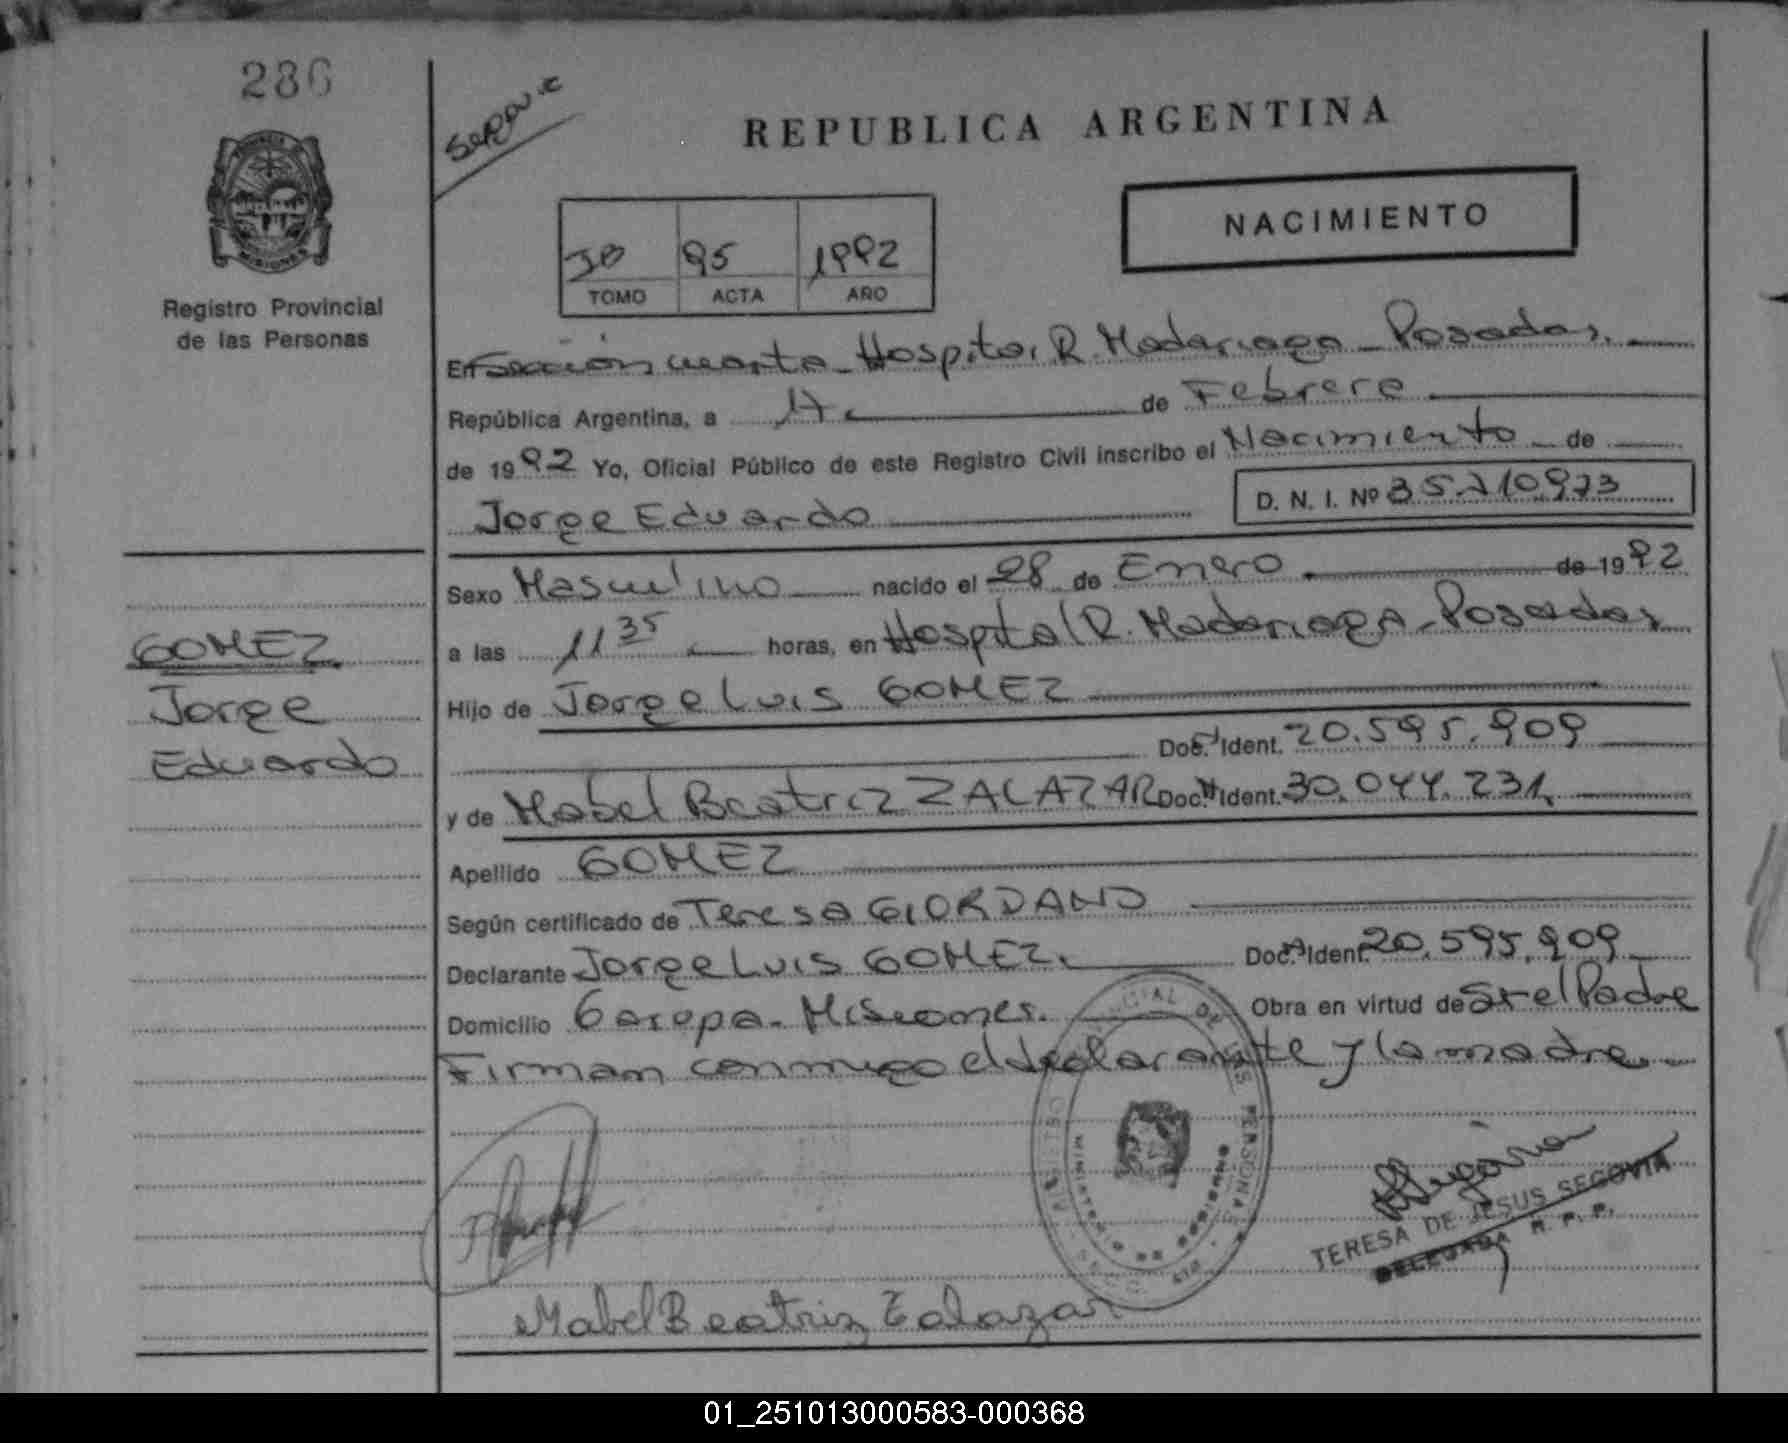 286
Registro Provincial
de las Personas
MISIONES
REPUBLICA ARGENTINA
NACIMIENTO
95 1992
TOMO ACTA AÑO
En Sección cuarta - Hospital R. Madariaga - Posadas.
República Argentina, a 17 de Febrero
de 1992 Yo, Oficial Público de este Registro Civil inscribo el Nacimiento de
Jorge Eduardo
D. N. I. Nº 35.710.973
Sexo Masculino nacido el 28 de Enero de 1992
a las 11 35 horas, en Hospital R. Madariaga - Posadas
Hijo de Jorge Luis GOMEZ
Doc. Ident. 20.595.909
y de Mabel Beatriz ZALAZAR Doc. Ident. 30.044.231.
Apellido GOMEZ
Según certificado de Teresa GIORDANO
Declarante Jorge Luis GOMEZ. Doc. Ident. 20.595.909
Domicilio Garupa - Misiones. Obra en virtud de Ser el Padre
Firman conmigo el declarante y la madre.
GOMEZ
Jorge
Eduardo
Mabel Beatriz Zalazar
TERESA DE JESUS SEGOVIA
DELEGADA R. P. P.
01_251013000583-000368